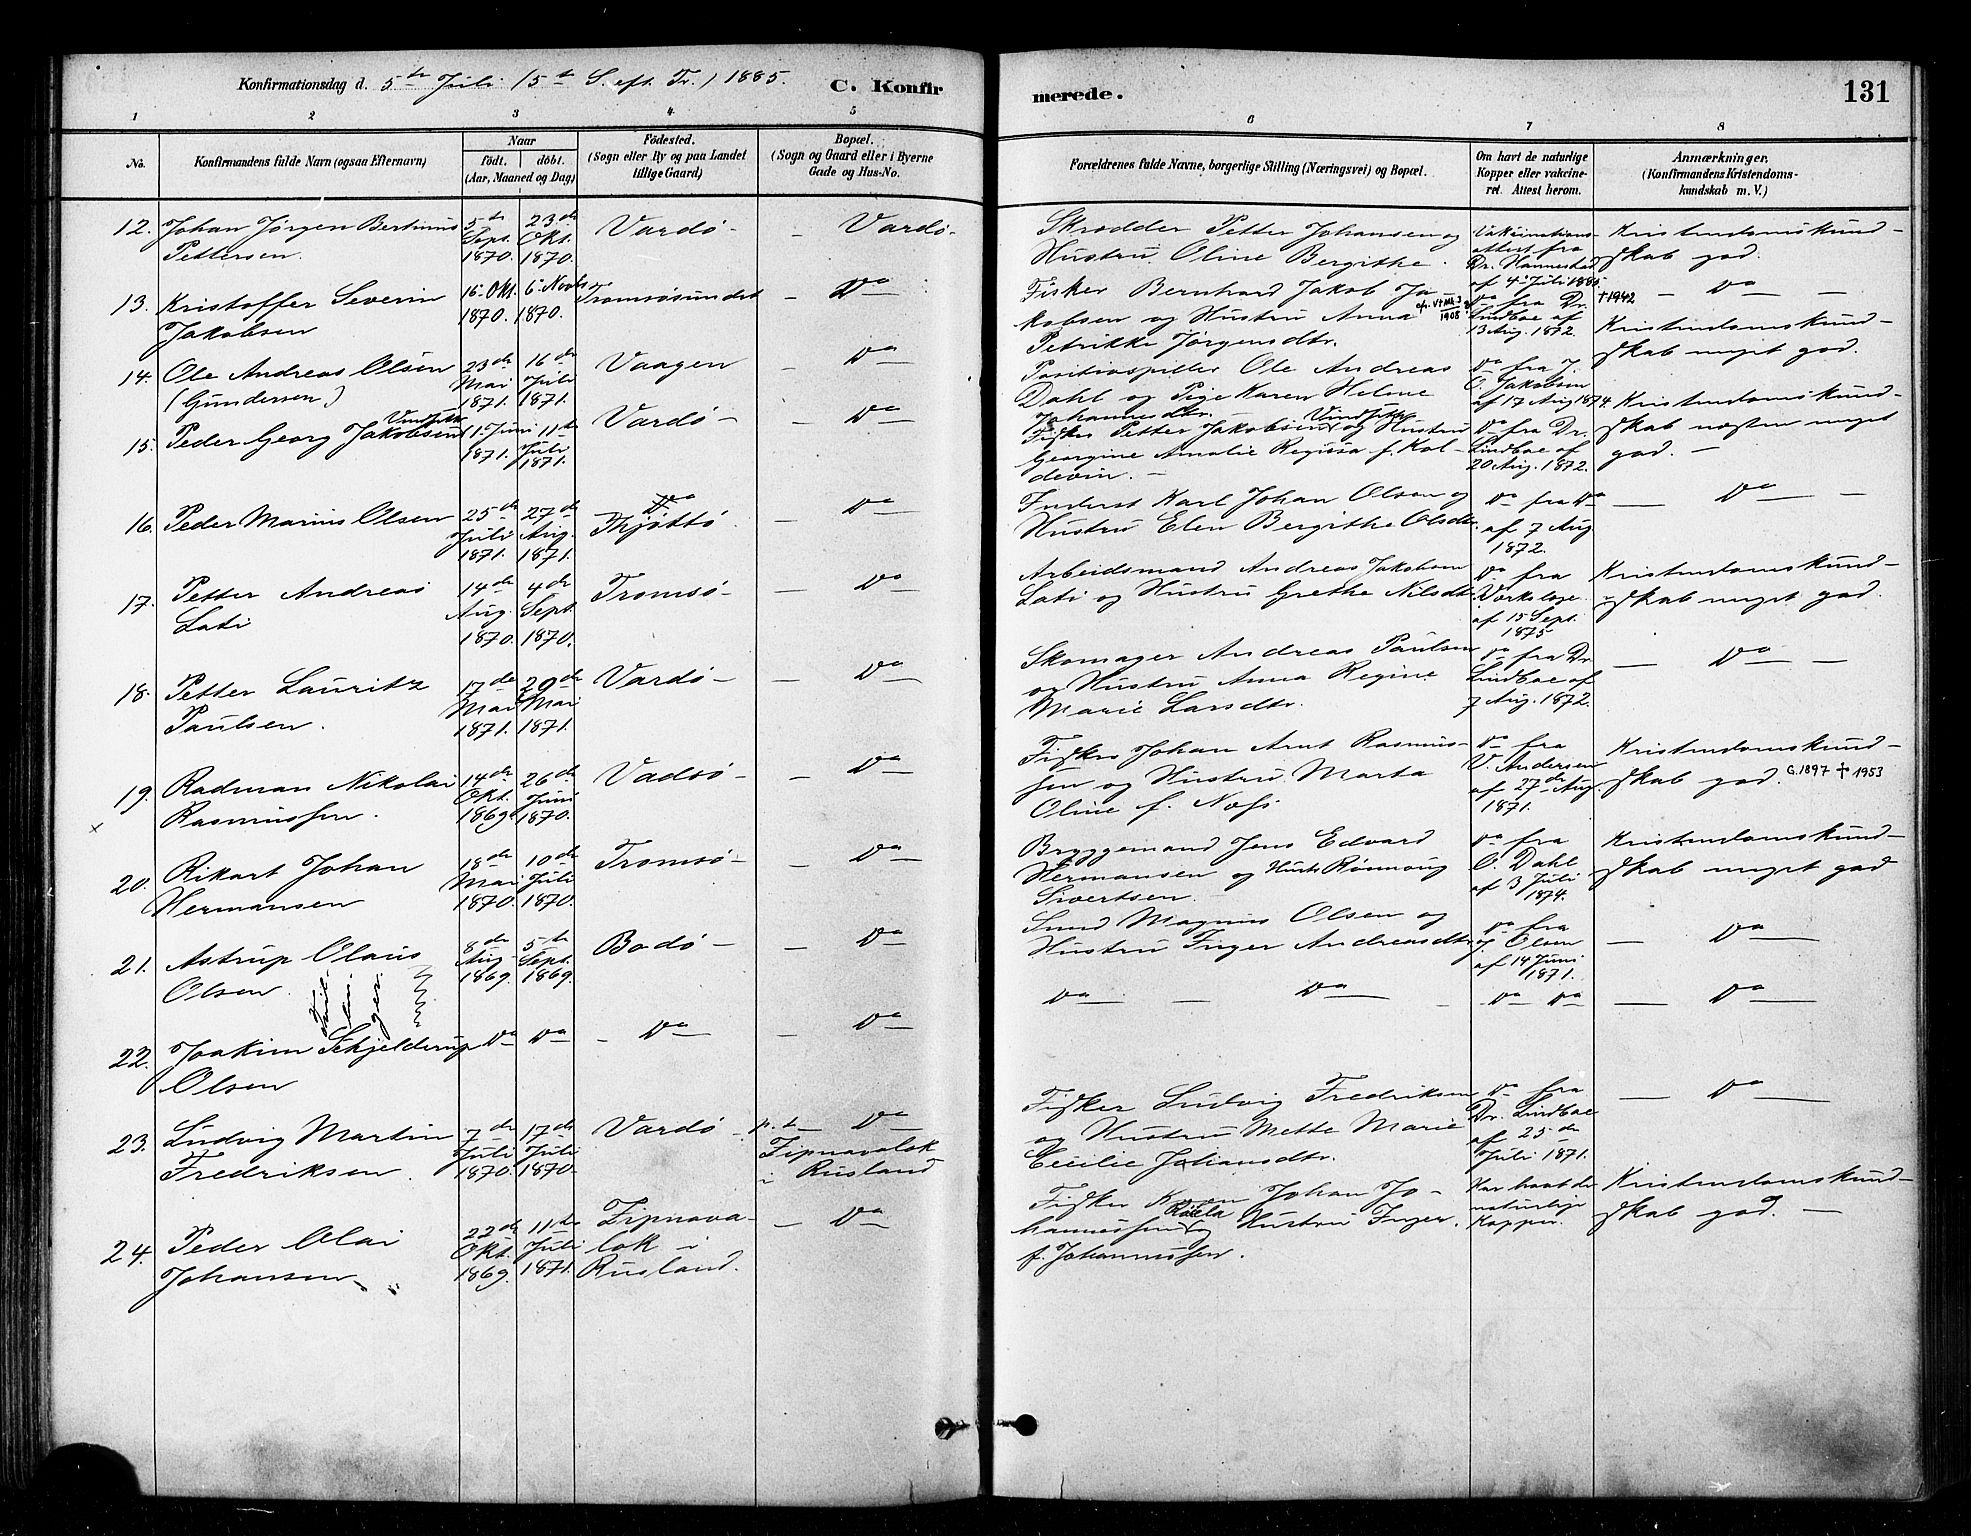 Konfirmationsdag d. 5te Juli (5te S. eft. Tr.) 1885.
C. Konfirmerede.
131
1 2 3 4 5 6 7 8
No.
Konfirmandens fulde Navn (ogsaa Efternavn)
Naar
födt. döbt.
(Aar, Maaned og Dag)
Födested.
(Sogn eller By og paa Landet
tillige Gaard)
Bopæl.
(Sogn og Gaard eller i Byerne
Gade og Hus-No.
Forældrenes fulde Navne, borgerlige Stilling (Næringsvei) og Bopæl.
Om havt de naturlige
Kopper eller vakcine-
ret. Attest herom.
Anmærkninger.
(Konfirmandens Kristendoms-
kundskab m. V.)
12. Johan Jörgen Bertinus
Pettersen.
5te Sept. 1870.
23de Okt. 1870.
Vardö-
- Vardö-
Skrædder Petter Johansen og
Hustru Oline Bergithe.
Vakcinations-
attest fra
Dr. Hannestad
af 4de Juli 1885.
Kristendomskund-
skab god.
13. Kristoffer Severin
Jakobsen
16-Okt. 1870.
6-Novbr 1870.
Tromsösundet
- Do
Fisker Bernhard Jakob Ja-
kobsen og Hustru Anna
Petrikke Jörgensdtr.
Do fra Dr.
Lindboe af
13 Aug. 1872.
†1942 - Do -
14. Ole Andreas Olsen
(Gundersen)
23de Mai 1871.
16de Juli 1871.
Vaagen
- Do
Positivspiller Ole Andreas
Dahl og Pige Karen Helene
Johannesdtr.
Do fra J.
C. Jakobsen
af 17 Aug 1874.
Kristendomskund-
skab meget god.
15. Peder Georg Jakobsen
1-Juni 1871.
11te Juli 1871.
Vardö-
- Do
Fisker Petter Jakobsen og Hustru
Georgine Amalie Regissa f. Kol-
devin. -
Do fra Dr.
Lindboe af
20 Aug. 1872.
Kristendomskund-
skab næsten meget
god. -
16. Peder Marius Olsen
25de Juli 1871.
27de Aug. 1871.
Do
Thjöttö.
- Do
Inderst Karl Johan Olsen og
Hustru Elen Bergithe Olsdtr.
Do fra Do
af 7 Aug
1872.
- Do -
17. Petter Andreas
Lati
14de Aug. 1870.
4de Sept. 1870.
Tromsö-
- Do
Arbeidsmand Andreas Jakobsen
Lati og Hustru Grethe Nilsdtr.
Do fra
af 15 Sept.
1875
Kristendomskund-
skab meget god.
18. Petter Lauritz
Paulsen.
17de Mai 1871.
29de Mai 1871.
Vardö-
- Do
Skomager Andreas Paulsen
og Hustru Anna Regine
Marie Larsdtr.
Do fra Dr
Lindboe af
7 Aug. 1872.
- Do -
19. Radman Nikolai
Rasmussen.
14de Okt. 1869.
26de Juni 1870.
Vadsö-
- Do
Fisker Johan Arnt Rasmus-
sen og Hustru Marta
Oline f. Næss.
Do fra
V. Andersen
af 27de Aug.
1871.
Kristendomskund-
skab god. G. 1897 † 1953
20. Rikart Johan
Hermansen
18de Mai 1870.
10de Juli 1870.
Tromsö-
- Do
Bryggemand Jens Edvard
Hermansen og Hustr. Rönnoug
Sivertsen.
Do fra
C. Dahl
af 3 Juli
1874.
Kristendomskund-
skab meget god
21. Astrup Olaus
Olsen.
8de Aug 1869.
5te Sept. 1869.
Bodö-
- Do
Smed Magnus Olsen og
Hustru Inger Andreasdtr
Do fra
J. Olsen
af 14 Juni
1871.
- Do
Tvil-
lin-
ger.
22. Joakim Schjelderup
Olsen
Do Do - Do
- Do
Do - Do -
Do Do
- Do
23. Ludvig Martin
Fredriksen.
7de Juli 1870.
17de Juli 1870.
Vardö-
p. t. - Do
Zipnavalok
i Rusland
Fisker Ludvig Fredriksen
og Hustru Mette Marie
Cecilie Johansdtr.
Do fra
Dr. Lindboe
af 25de
Juli 1871.
- Do -
24. Peder Olai
Johansen
22de Okt. 1869.
11te Juli 1871.
Zipnava-
lok i
Rusland.
- Do
Fisker Johan Jo-
hannessen og Hustru Inger.
f. Johannessen.
Har havt de
naturlige
Kopper.
Kristendomskund-
skab god. -